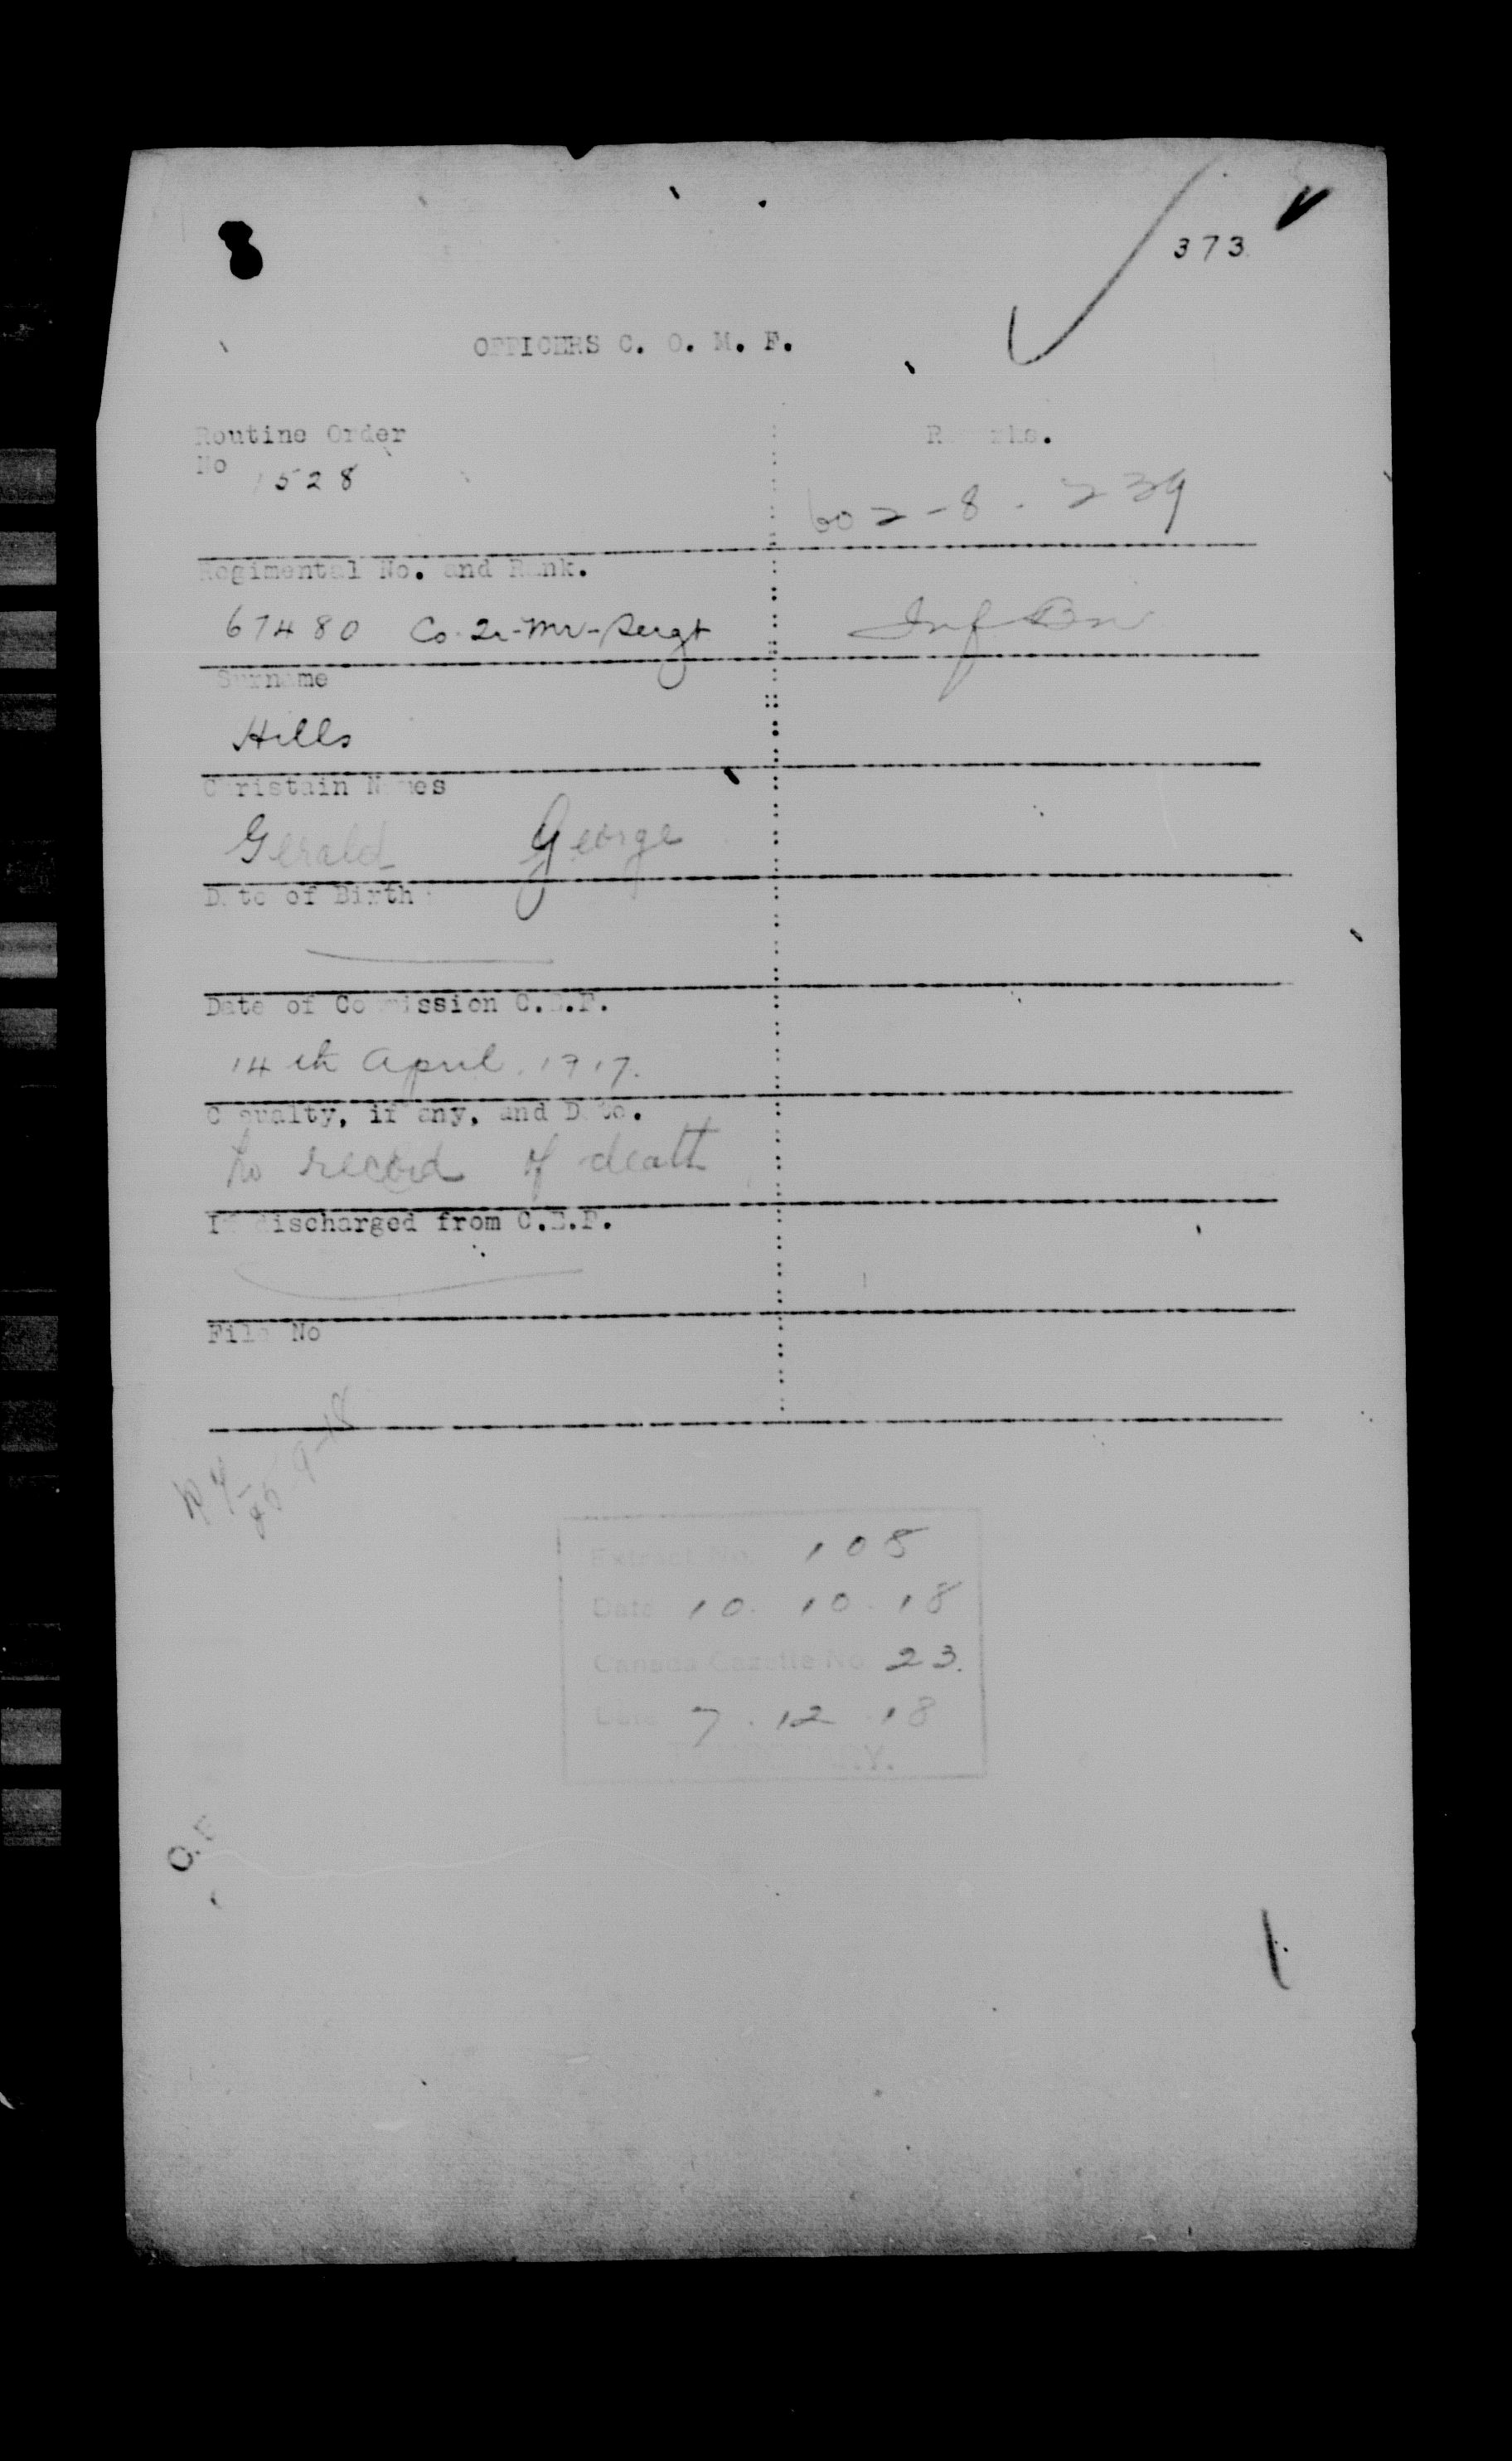 373
OFFICERS C. O. M. F.
Routine Order
No 1528
Remarks.
602-8-239
Regimental No. and Rank.
67480 Co. Qr-Mr-Sergt
Inf Bn
Surname
Hills
Christain Names
Gerald George
Date of Birth
Date of Commission C.E.F.
14th April. 1917.
Casualty, if any, and Date.
No record of death
If discharged from C.E.F.
File No
Extract No. 105
Date 10. 10. 18
Canada Gazette No 23.
Date 7. 12. 18
TEMPORARY.